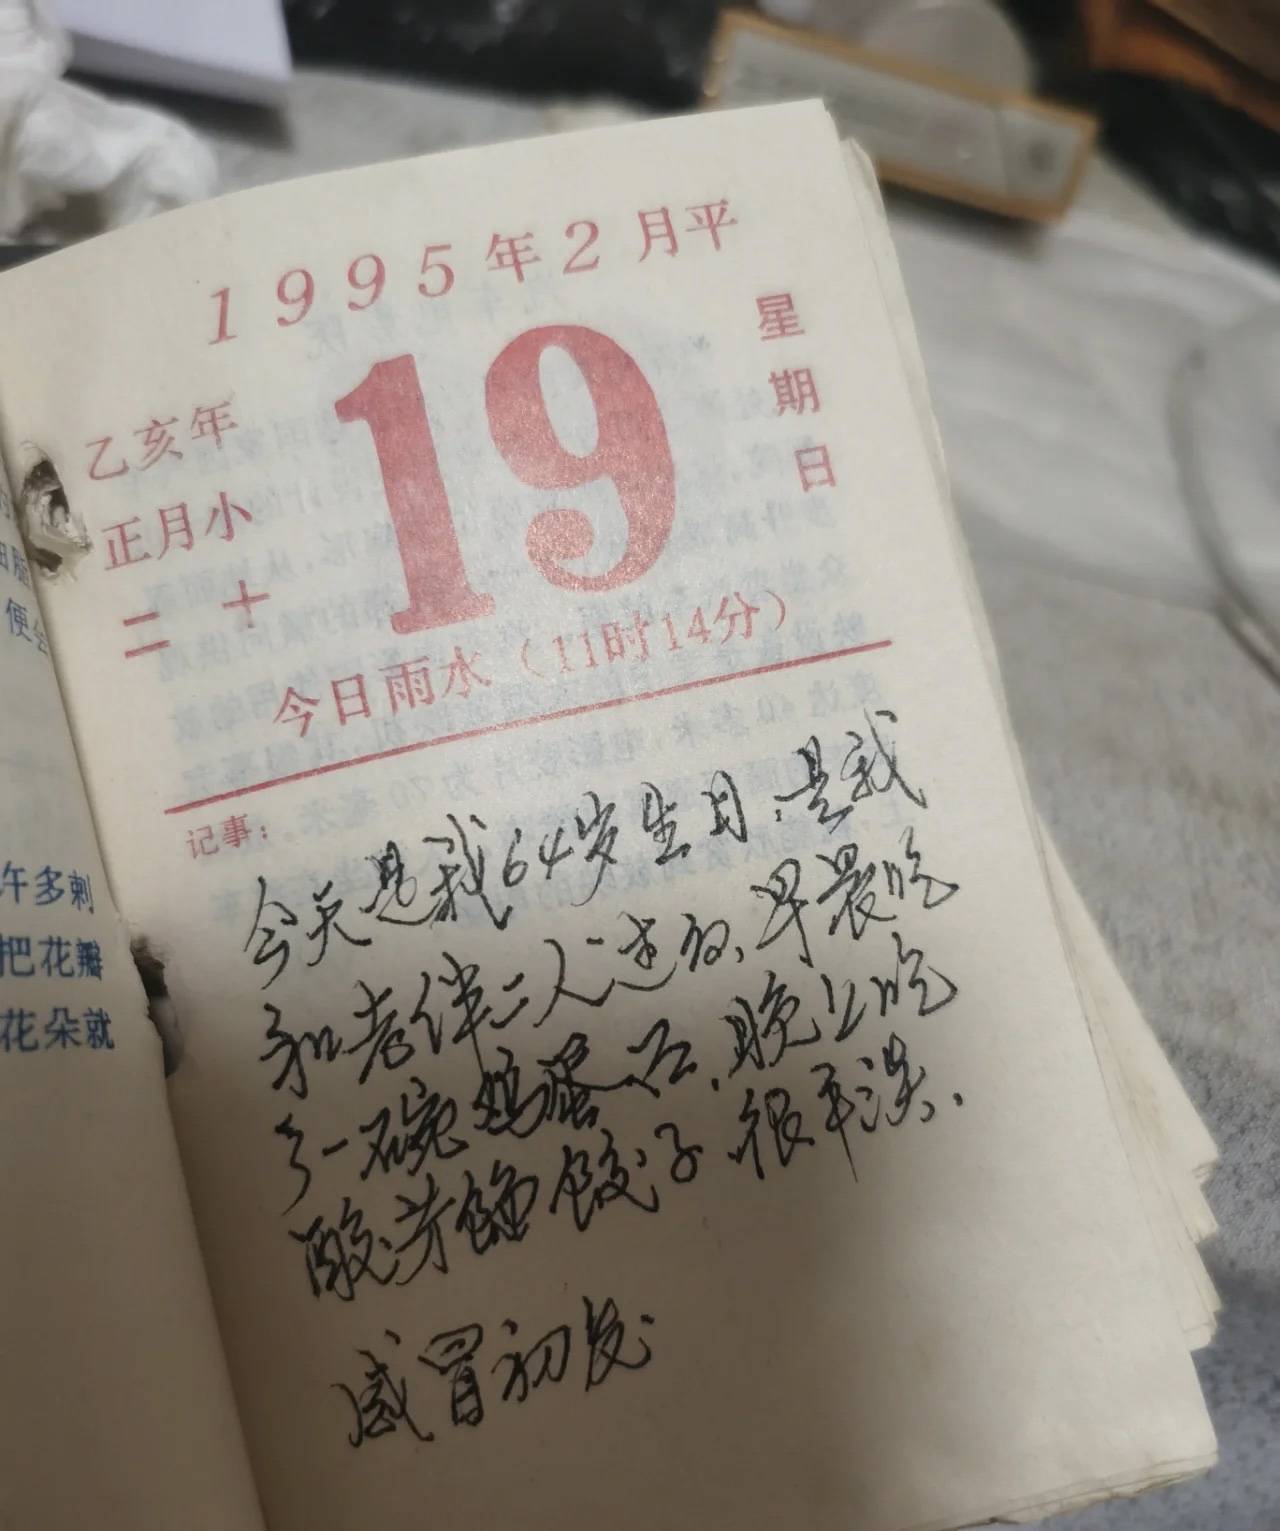 1995年2月平
19
星期日
乙亥年
正月小
二十
今日雨水（11时14分）
记事：
今天是我64岁生日，是我
和老伴二人过的，早晨吃
了一碗鸡蛋
，晚上吃
酸芽馅饺子，很平淡．
感冒初发
午多刺
把花瓣
花朵就
便会